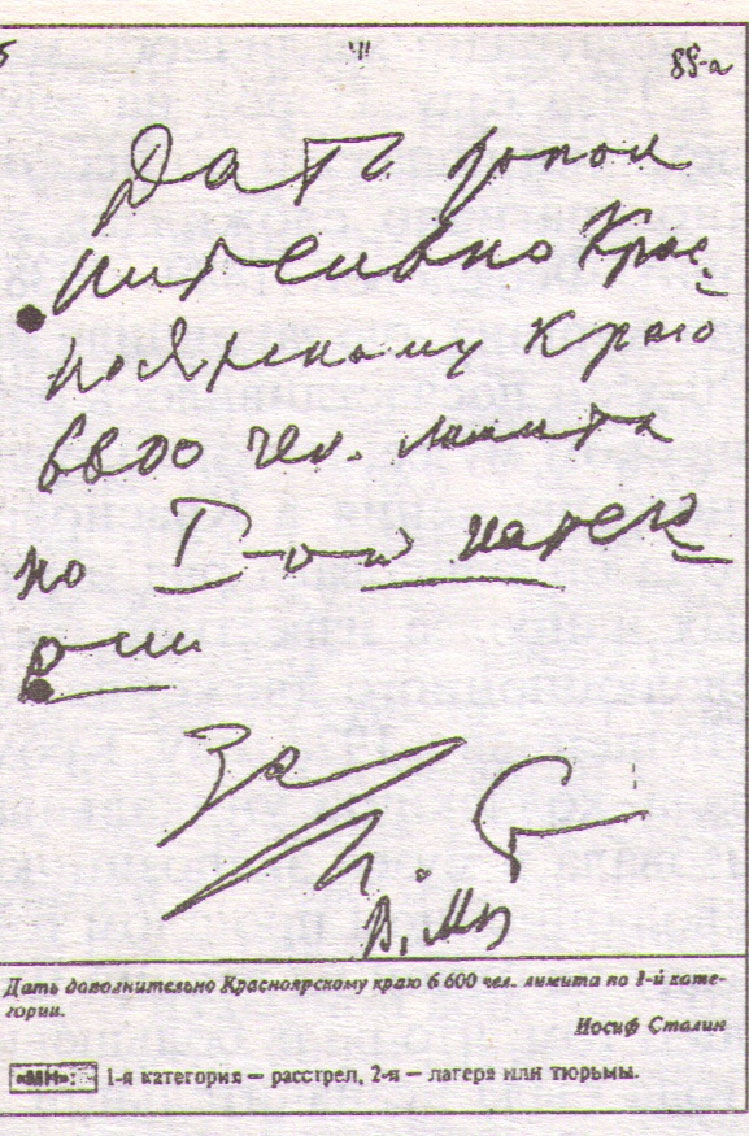 88-а
Дать допол
нительно Крас-
ноярскому краю
6600 чел. лимита
по I-ой катего-
рии
За
И. Ст
В. Мл
Дать дополнительно Красноярскому краю 6 600 чел. лимита по 1-й кате-
гории.
Иосиф Сталин
«МН»: 1-я категория — расстрел, 2-я — лагеря или тюрьмы.